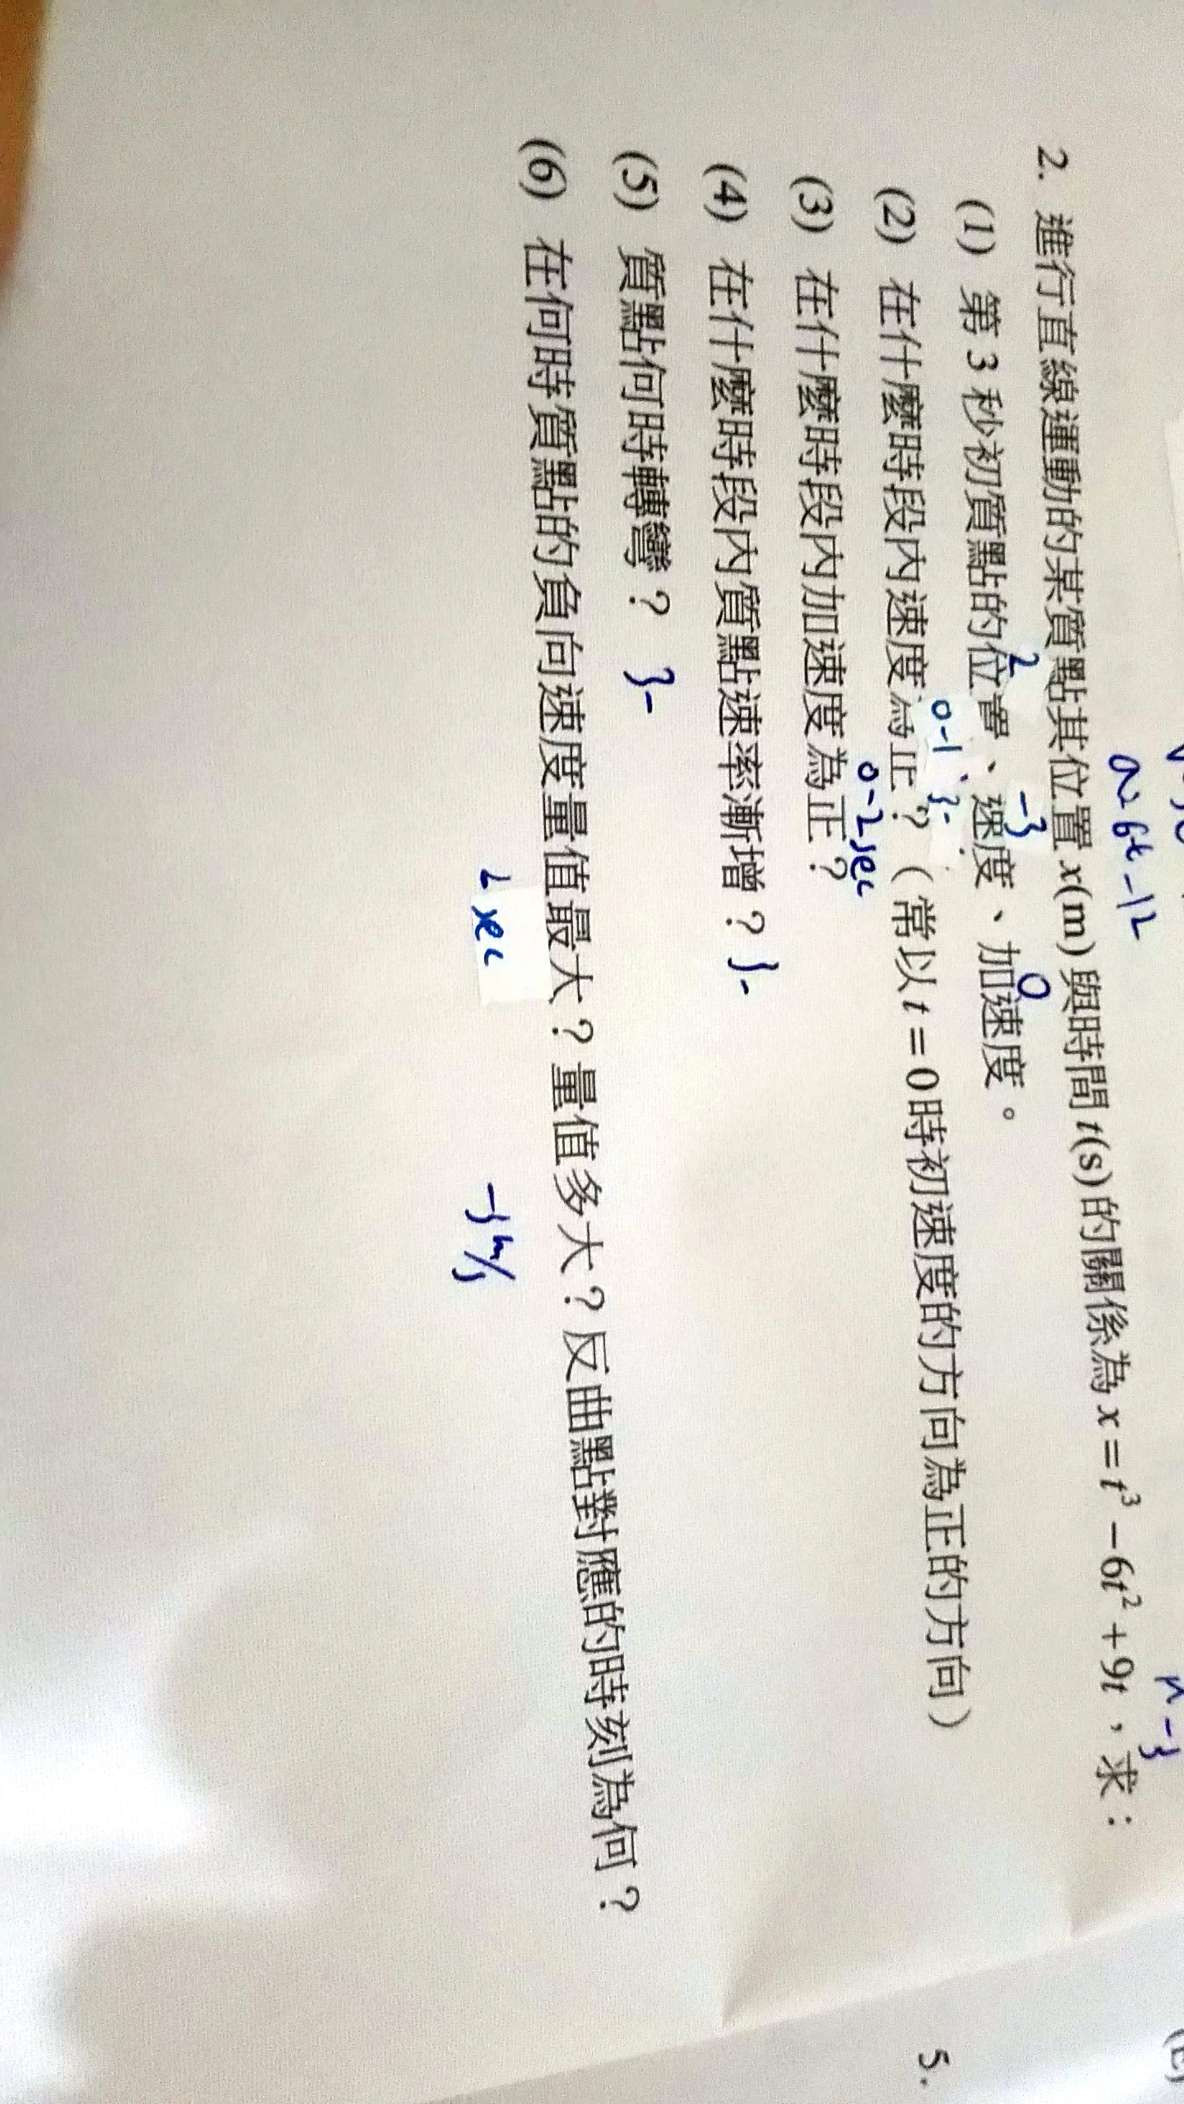 a=6t-12
2. 進行直線運動的某質點其位置x(m)與時間t(s)的關係為x=t³-6t²+9t，求：
2 -3 0
(1) 第3秒初質點的位置、速度、加速度。
0-1、3-
(2) 在什麼時段內速度為正？（常以t=0時初速度的方向為正的方向）
0-2sec
(3) 在什麼時段內加速度為正？
(4) 在什麼時段內質點速率漸增？3-
(5) 質點何時轉彎？ 3-
(6) 在何時質點的負向速度量值最大？量值多大？反曲點對應的時刻為何？
2 sec -3m/s
5.